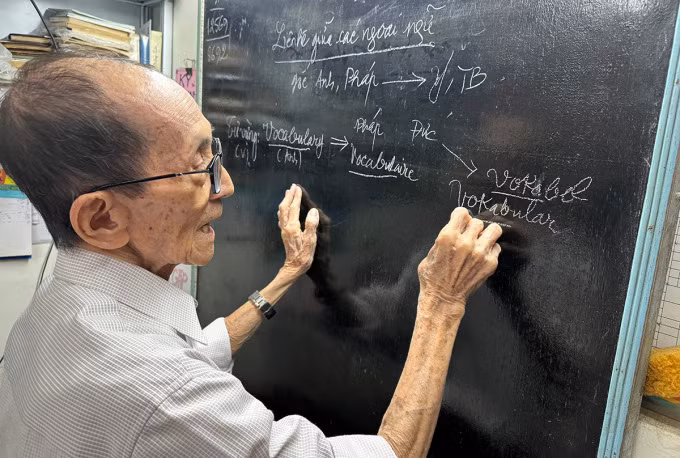 Liên hệ giữa các ngoại ngữ
gốc Anh, Pháp → Ý, TB
Từ vựng: Vocabulary ⇒ Pháp Đức
(VN) (Anh) Vocabulaire
Vokabel
Vokabular